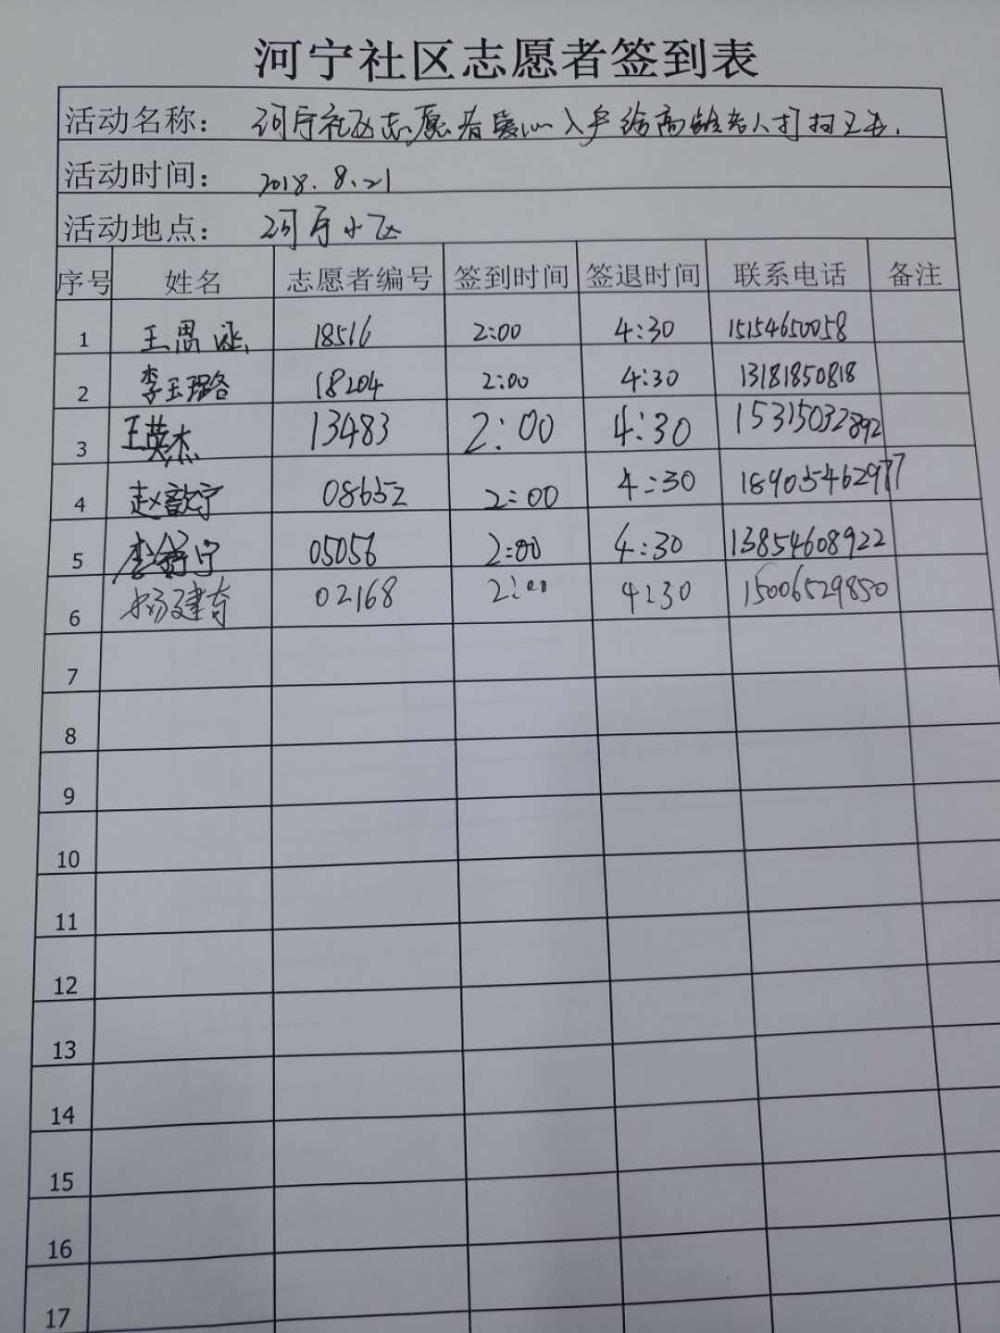 河宁社区志愿者签到表
活动名称： 河宁社区志愿者爱心入户给高龄老人打扫卫生.
活动时间： 2018.8.21
活动地点： 河宁小区
序号 姓名 志愿者编号 签到时间 签退时间 联系电话 备注
1 王思 18516 2:00 4:30 15154650058
2 李玉璐 18204 2:00 4:30 13181850818
3 王英杰 13483 2:00 4:30 15315032892
4 赵歆宁 08652 2:00 4:30 18905462977
5 李 宁 05056 2:00 4:30 13854608922
6 杨建奇 02168 2:00 4:30 15006529850
7
8
9
10
11
12
13
14
15
16
17